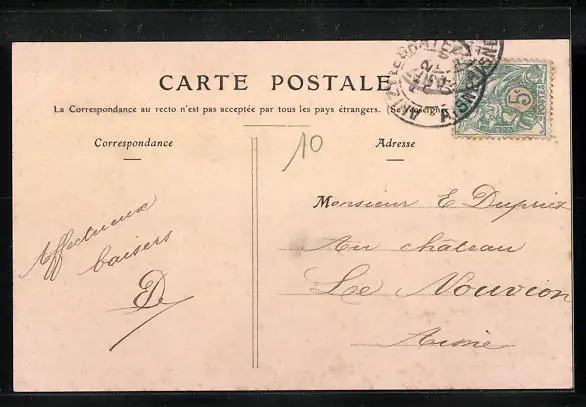 CARTE POSTALE
La Correspondance au recto n'est pas acceptée par tous les pays étrangers. (Se renseigner
Correspondance
Adresse
10
5c
POSTES
AISNE
Affectueux
baisers
ED
Monsieur E. Dupriez
Au château
Le Nouvion
Aisne